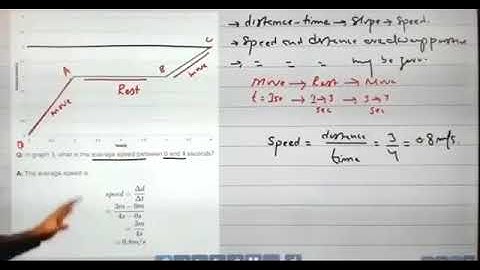 A
B
C
move
Rest
move
Q: In graph 3, what is the average speed between 0 and 4 seconds?
A: The average speed is
speed = Δd
Δt
= 3m − 0m
4s − 0s
= 3m
4s
= 0.8m/s
→ distance - time → slope → speed.
→ speed and distance are always positive
→ = = = may be zero.
Move → Rest → Move
sec sec
Speed = distance = 3 = 0.8 m/s.
time 4